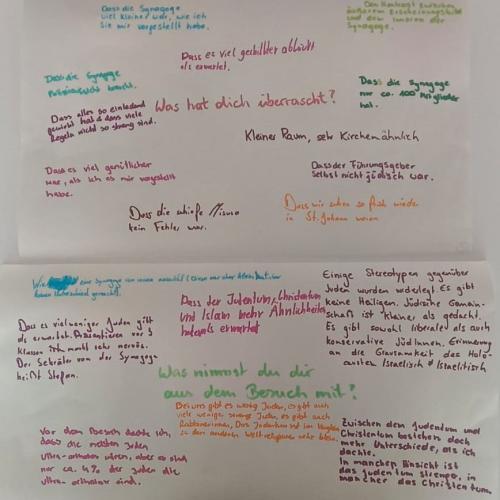 Dass die Synagoge
viel kleiner war, wie ich
sie mir vorgestellt habe.
Den Kontrast zwischen
äußerem Erscheinungsbild
und dem inneren der
Synagoge.
Dass es viel gechillter abläuft
als erwartet.
Dass die Synagoge
braucht.
Dass die Synagoge
nur ca. 100 Mitglieder
hat.
Dass alles so einladend
gewirkt hat & dass viele
Regeln nicht so streng sind.
Was hat dich überrascht?
Kleiner Raum, sehr Kirchenähnlich
Dass es viel gemütlicher
war, als ich es mir vorgestellt
habe.
Dass der Führungsgeber
selbst nicht jüdisch war.
Dass die schiefe Misuso
kein Fehler war.
Dass wir schon so früh wieder
in St. Johann waren
eine Synagoge von innen aussieht
Dass es viel weniger Juden gibt
als erwartet. Präsentieren vor 3
Klassen ich macht sehr nervös.
Der Sekräter von der Synagoge
heißt Stefan.
Dass der Judentum, Christentum
und Islam mehr Ähnlichkeiten
haben als erwartet
Einige Stereotypen gegenüber
Juden wurden widerlegt. Es gibt
keine Heiligen. Jüdische Gemein-
schaft ist kleiner als gedacht.
Es gibt sowohl liberale als auch
konservative Jüdinnen. Erinnerung
an die Grausamkeit des Holo-
caustes Israelisch ≠ Israelitisch
Was nimmst du dir
aus dem Besuch mit?
Bei uns gibt es wenig Juden, es gibt auch
viel weniger strenge Juden, es gibt auch
Rabbinerinnen, Das Judentum ist im Vergleich
zu den anderen Weltreligionen sehr klein.
Vor dem Besuch dachte ich,
dass die meisten Juden
ultra-orthodox wären, aber es sind
nur ca. 4% der Juden die
ultra-orthodox sind.
Zwischen dem Judentum und
Christentum bestehen doch
mehr Unterschiede, als ich
dachte.
In mancher Hinsicht ist
das Judentum strenger, in
mancher das Christentum.